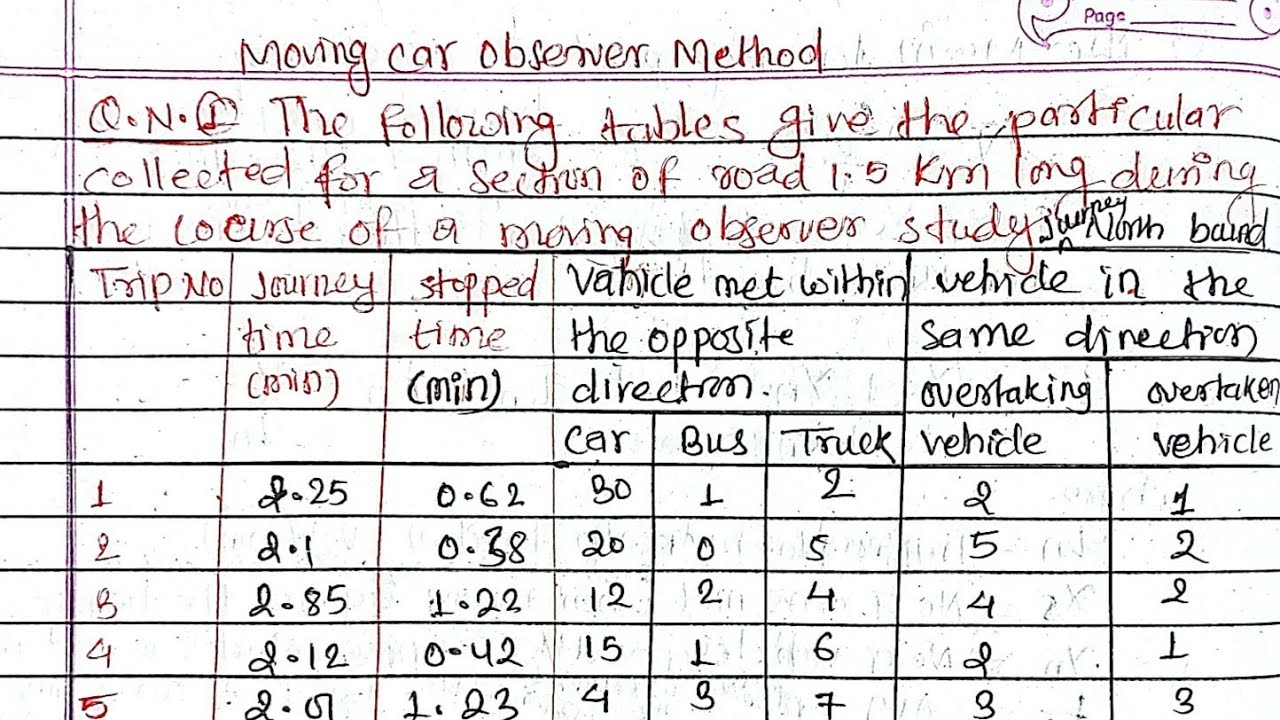 Page
Moving car observer Method
Q.N.① The following tables give the particular
collected for a section of road 1.5 Km long during
the course of a moving observer study journey North bound
Trip No Journey time (min) stopped time (min) Vahicle met within the opposite direction. vehicle in the same direction
overtaking vehicle overtaken vehicle
Car Bus Truck
1 2.25 0.62 30 1 2 2 1
2 2.1 0.38 20 0 5 5 2
3 2.85 1.22 12 2 4 4 2
4 2.12 0.42 15 1 6 2 1
5 1.23 4 3 7 3 3